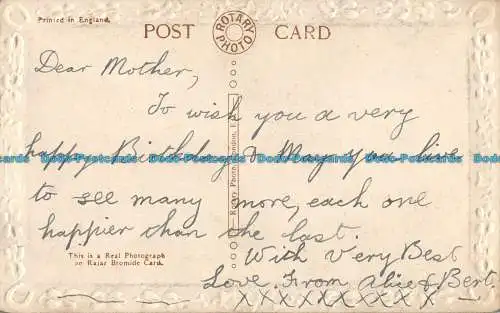 Printed in England.
POST CARD
ROTARY PHOTO
Dear Mother,
To wish you a very
happy Birthday & May you live
to see many more, each one
happier than the last.
This is a Real Photograph
on Rajar Bromide Card.
With Very Best
Love. From Alice & Bert.
XXXXXXXXXX
Rotary Photo, London, E
Dodo-Postcards Dodo-Postcards Dodo-Postcards